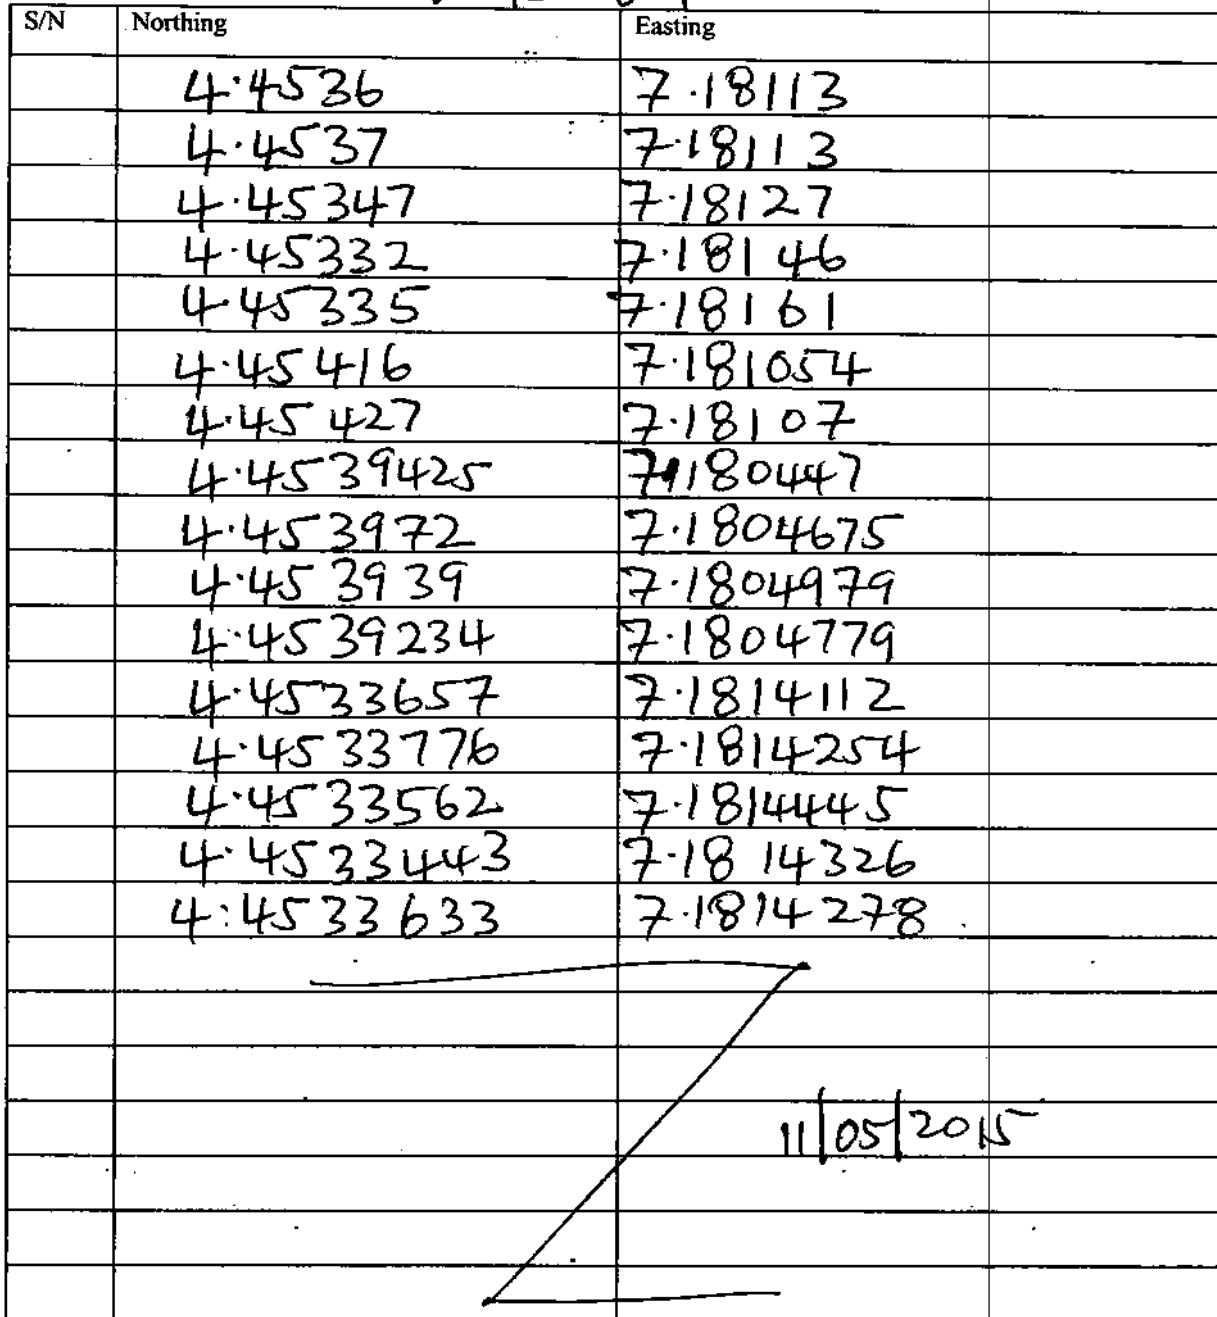 S/N Northing Easting
4.4536 7.18113
4.4537 7.18113
4.45347 7.18127
4.45332 7.18146
4.45335 7.18161
4.45416 7.181054
4.45427 7.18107
4.4539425 7.180447
4.453972 7.1804675
4.453939 7.1804979
4.4539234 7.1804779
4.4533657 7.1814112
4.4533776 7.1814254
4.4533562 7.1814445
4.4533443 7.1814326
4.4533633 7.1814278
11/05/2015